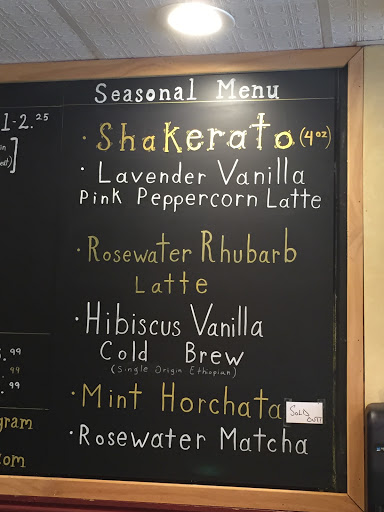 Seasonal Menu
1-2.25
· Shakerato (4oz)
· Lavender Vanilla
Pink Peppercorn Latte
· Rosewater Rhubarb
Latte
· Hibiscus Vanilla
Cold Brew
(Single Origin Ethiopian)
.99
.99
.99
· Mint Horchata
SOLD
OUT!
gram
· Rosewater Matcha
com